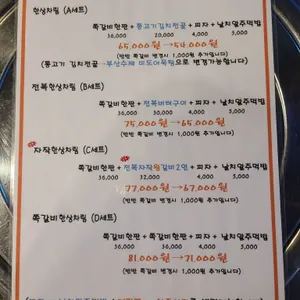 한상차림 (A세트)
쪽갈비한판 + 통고기 김치전골 + 피자 + 날치알주먹밥
36,000 20,000 4,000 5,000
65,000원→54,000원
(반반 쪽갈비 변경시 1,000원 추가입니다)
(통고기 김치전골→부산수제 미도어묵탕으로 변경가능합니다)
전복한상차림 (B세트)
쪽갈비한판 + 전복버터구이 + 피자 + 날치알주먹밥
36,000 4,000 5,000
75,000원→65,000원
(반반 쪽갈비 변경시 1,000원 추가입니다)
자작한상차림 (C세트)
쪽갈비한판 + 전복자작 갈비2인 + 피자 + 날치알주먹밥
36,000 32,000 4,000 5,000
77,000원→67,000원
(반반 쪽갈비 변경시 1,000원 추가입니다)
쪽갈비한상차림 (D세트)
쪽갈비한판 + 쪽갈비한판 + 피자 + 날치알주먹밥
36,000 36,000 4,000 5,000
81,000원→71,000원
(반반 쪽갈비 변경시 1,000원 추가입니다)